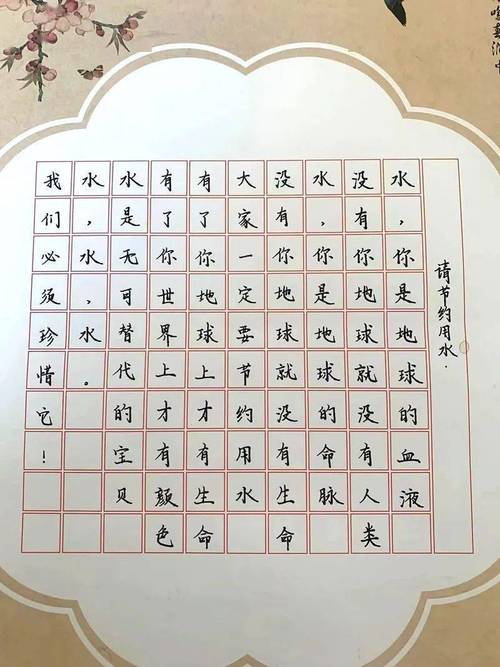 请节约用水.
水，你是地球的血液
没有，你地球就没有人类
水，你是地球的命脉
没有，你地球就没有生命
大家一定要节约用水
有了你地球上才有生命
有了你世界上才有颜色
水是无可替代的宝贝
水，水，水。
我们必须珍惜它！